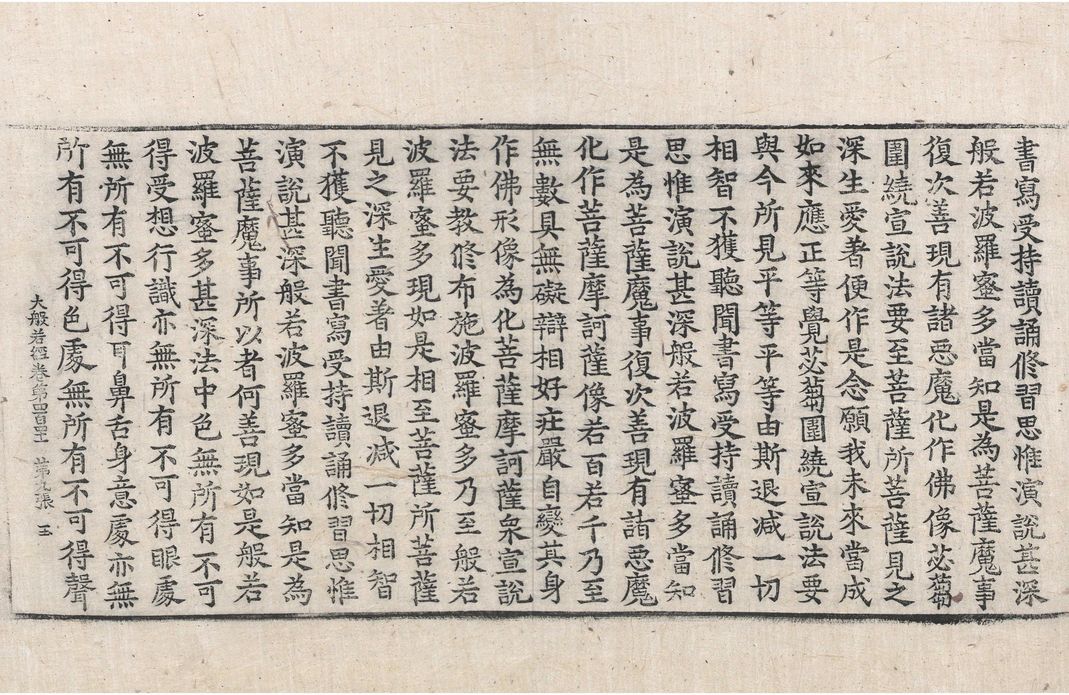 書寫受持讀誦修習思惟演說甚深
般若波羅蜜多當知是為菩薩魔事
復次善現有諸惡魔化作佛像苾芻
圍繞宣說法要至菩薩所菩薩見之
深生愛著便作是念願我未來當成
如來應正等覺苾芻圍繞宣說法要
與今所見平等平等由斯退減一切
相智不獲聽聞書寫受持讀誦修習
思惟演說甚深般若波羅蜜多當知
是為菩薩魔事復次善現有諸惡魔
化作菩薩摩訶薩像若百若千乃至
無數具無礙辯相好莊嚴自變其身
作佛形像為化菩薩摩訶薩衆宣說
法要教修布施波羅蜜多乃至般若
波羅蜜多現如是相至菩薩所菩薩
見之深生愛著由斯退減一切相智
不獲聽聞書寫受持讀誦修習思惟
演說甚深般若波羅蜜多當知是為
菩薩魔事所以者何善現如是般若
波羅蜜多甚深法中色無所有不可
得受想行識亦無所有不可得眼處
無所有不可得耳鼻舌身意處亦無
所有不可得色處無所有不可得聲
大般若經卷第四百四十 第九張 玉